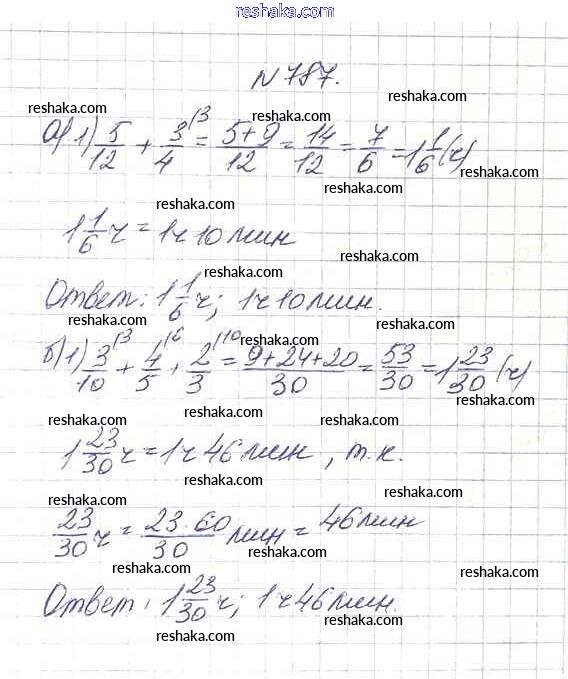 www.reshaka.com
№ 787.
reshaka.com reshaka.com reshaka.com
а) 1) 5/12 + 3/4 (3 = 5+9/12 = 14/12 = 7/6 = 1 1/6 (ч)
reshaka.com reshaka.com reshaka.com
reshaka.com reshaka.com
1 1/6 ч = 1ч 10 мин
reshaka.com reshaka.com
reshaka.com
Ответ: 1 1/6 ч; 1ч 10 мин.
reshaka.com reshaka.com reshaka.com
б) 1) 3/10 (3 + 4/5 (6 + 2/3 (10 = 9+24+20/30 = 53/30 = 1 23/30 (ч)
reshaka.com reshaka.com
reshaka.com reshaka.com
1 23/30 ч = 1ч 46 мин, т.к.
reshaka.com reshaka.com
reshaka.com
23/30 ч = 23·60/30 мин = 46 мин
reshaka.com
reshaka.com reshaka.com
Ответ: 1 23/30 ч; 1ч 46 мин.
reshaka.com reshaka.com
reshaka.com